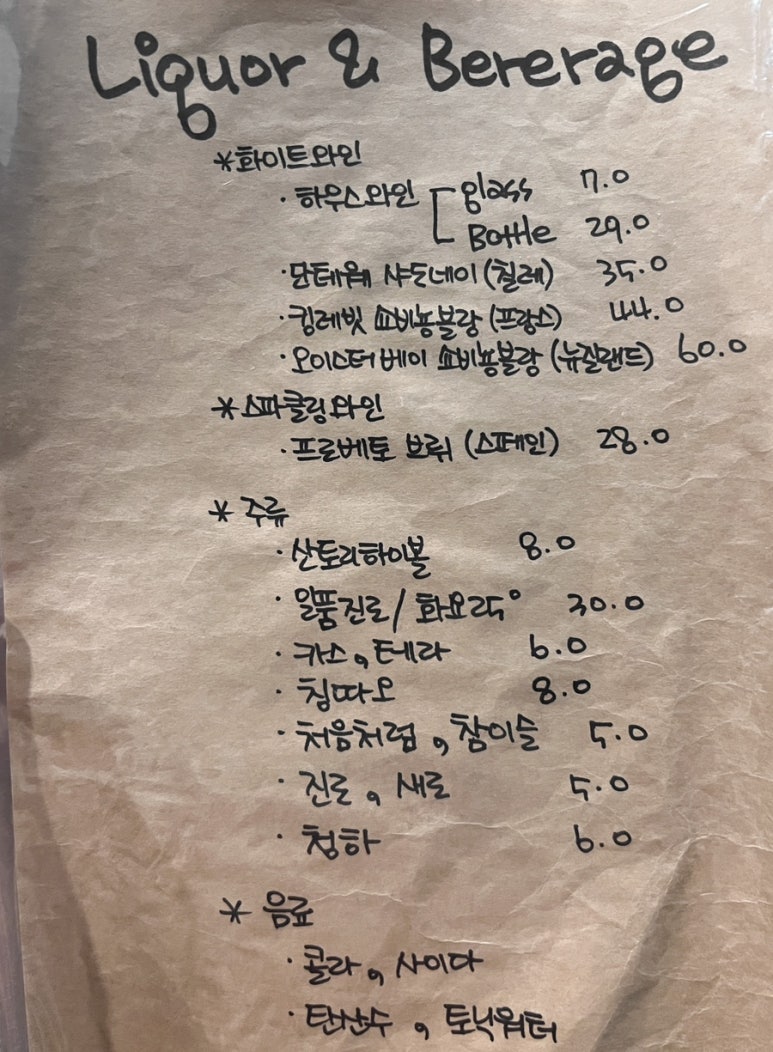 Liquor & Bererage
*화이트와인
· 하우스와인 glass 7.0
Bottle 29.0
· 단테웨 샤도네이 (칠레) 35.0
· 킹레빗 쇼비뇽블랑 (프랑스) 44.0
· 오이스터베이 쇼비뇽블랑 (뉴질랜드) 60.0
*스파클링와인
· 프로베토 브뤼 (스페인) 28.0
* 주류
· 산토리하이볼 8.0
· 일품진로 / 화요25° 30.0
· 카스, 테라 6.0
· 칭따오 8.0
· 처음처럼, 참이슬 5.0
· 진로, 새로 5.0
· 청하 6.0
* 음료
· 콜라, 사이다
· 탄산수, 토닉워터